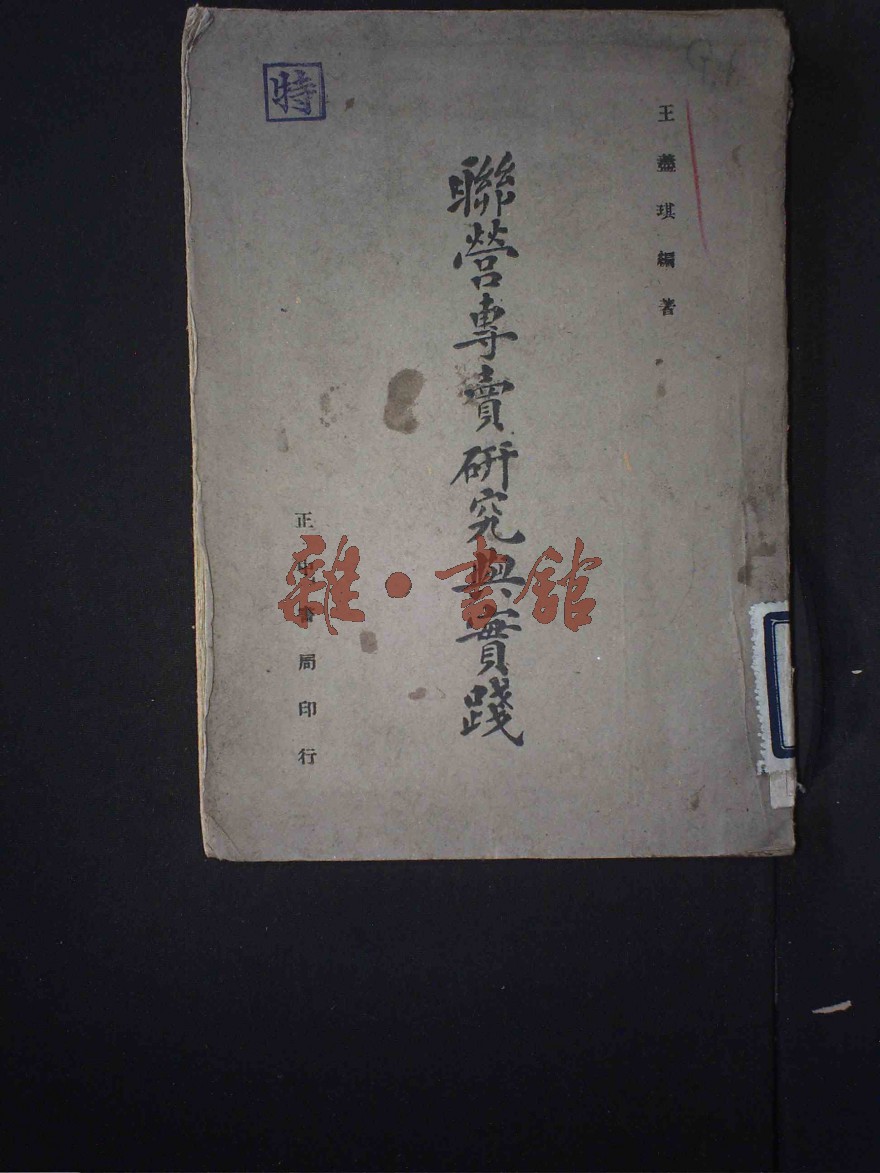 王藎琪編著
聯營專賣研究與實踐
特
正中書局印行
雜·書館